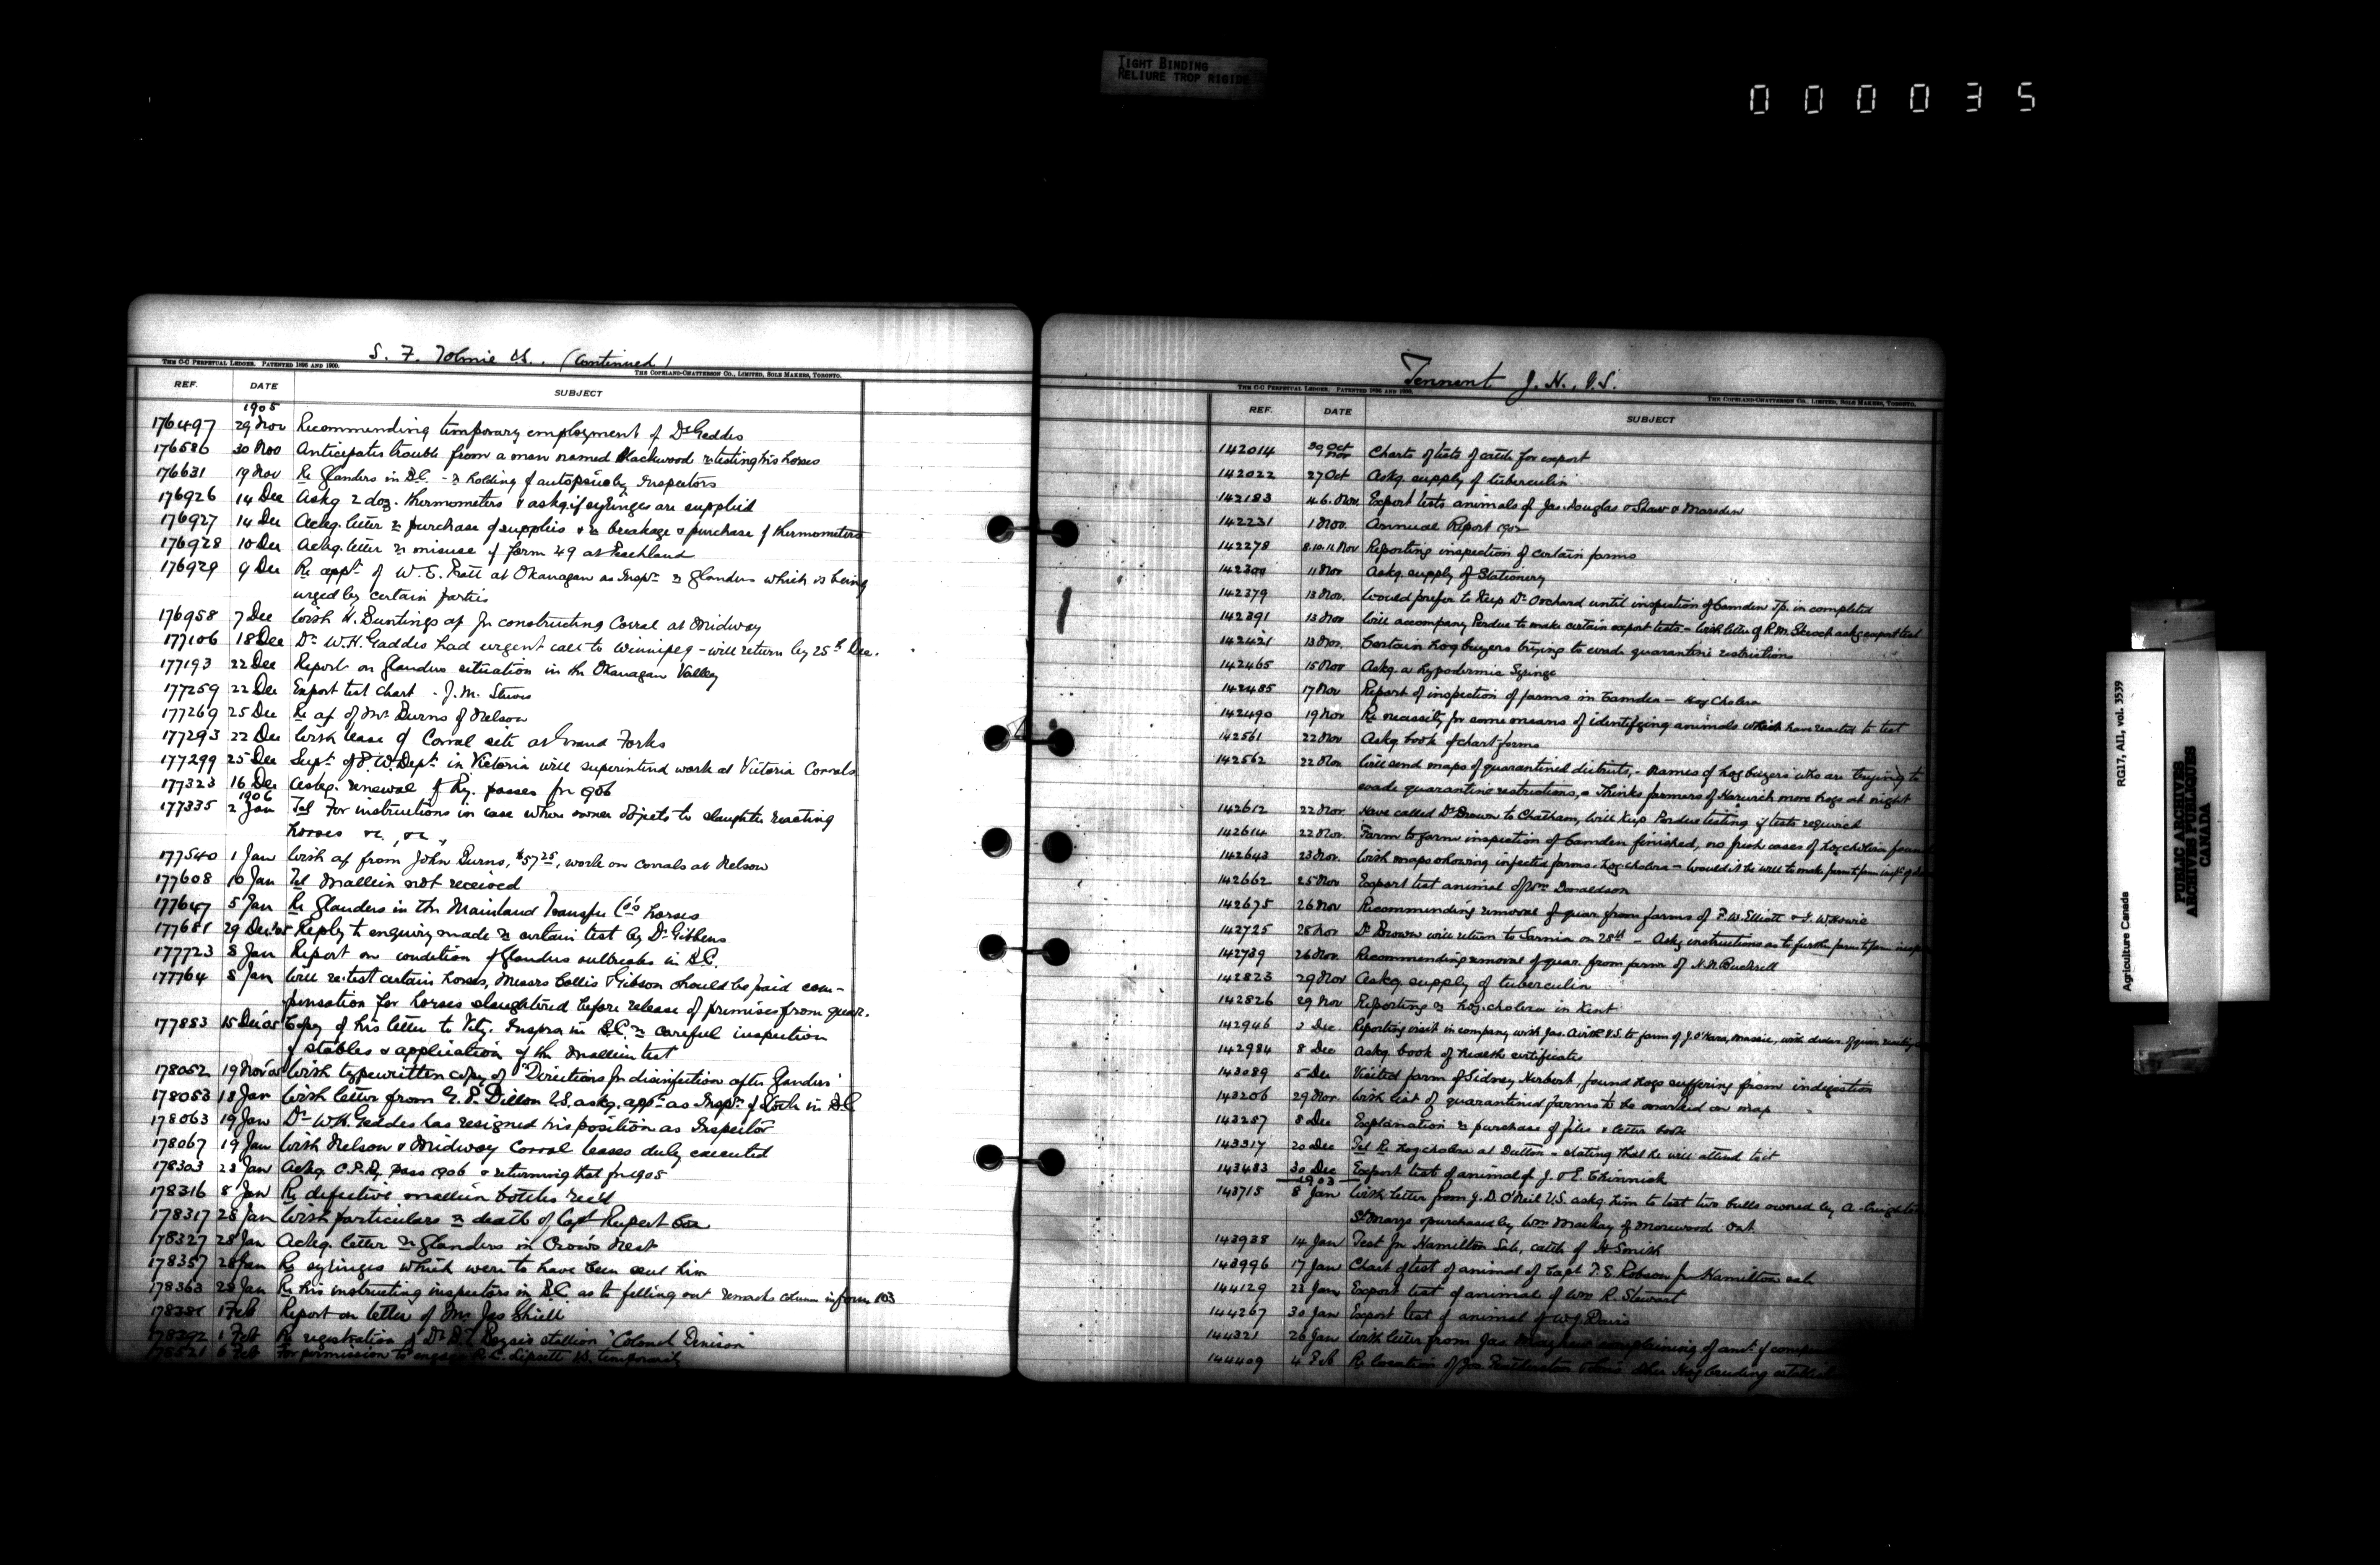 TIGHT BINDING
RELIURE TROP RIGIDE
000035
S. F. Tolmie V.S. (Continued)
THE C-C PERPETUAL LEDGER. PATENTED 1896 AND 1900.
THE COPELAND-CHATTERSON CO., LIMITED, SOLE MAKERS, TORONTO.
REF. DATE SUBJECT
1905
176497 29 Nov Recommending temporary employment of Dr Geddis
176586 30 Nov Anticipates trouble from a man named Blackwood re testing his horses
176631 19 Nov Re Glanders in B.C. - re holding of autopsies by Inspectors
176926 14 Dec Askg 2 doz. thermometers & askg. if syringes are supplied
176927 14 Dec Ackg. letter re purchase of supplies & re breakage & purchase of thermometers
176928 10 Dec Ackg. letter re misuse of form 49 at Peachland
176929 9 Dec Re appt. of W. E. at Okanagan as Inspr. re Glanders which is being
urged by certain parties
176958 7 Dec With H. Buntings a/c for constructing Corral at Midway
177106 18 Dec Dr. W.H. Gaddis had urgent call to Winnipeg - will return by 25th Dec.
177193 22 Dec Report on glanders situation in the Okanagan Valley
177259 22 Dec Export test chart - J.M. Steves
177269 25 Dec Re a/c of Mr. Burns of Nelson
177293 22 Dec With lease of Corral site at Grand Forks
177299 25 Dec Supt. of P.W. Dept. in Victoria will superintend work at Victoria Corrals
177323 16 Dec Askg. renewal of Ry. passes for 1906
1906
177335 2 Jan Tel For instructions in case where owner objects to slaughter reacting
horses &c, &c,
177540 1 Jan With a/c from John Burns, $57.25, work on corrals at Nelson
177608 10 Jan Tel Mallein not received
177647 5 Jan Re Glanders in the Mainland Transfer Co's horses
177651 29 Dec '05 Reply to enquiry made re certain test by Dr Gibbens
177723 8 Jan Report on condition of Glanders outbreaks in B.C.
177764 8 Jan Will re-test certain horses, Messrs Collis & Gibson should be paid com-
pensation for horses slaughtered before release of premises from quar.
177883 15 Dec '05 Copy of his letter to Vety. Insprs in B.C. re careful inspection
of stables & application of the Mallein test
178052 19 Nov '05 With typewritten copy of "Directions for disinfection after Glanders"
178053 18 Jan With letter from G. P. Dillon V.S. askg. appt. as Inspr. of Stock in B.C.
178063 19 Jan Dr. W.H. Geddes has resigned his position as Inspector
178067 19 Jan With Nelson & Midway Corral leases duly executed
178303 28 Jan Ackg. C.P.R. pass 1906 & returning that for 1905
178316 8 Jan Re defective mallein bottles rec'd
178317 28 Jan With particulars re death of Capt Rupert Cox
178327 28 Jan Ackg. letter re Glanders in Crow's Nest
178357 28 Jan Re syringes which were to have been sent him
178363 28 Jan Re his instructing inspectors in B.C. as to filling out remarks column in form 103
178381 1 Feb Report on letter of Mr Jas Shiell
178392 1 Feb Re registration of Dr stallion "Colonel Denison"
178521 6 Feb For permission to engage R.C. Lipsett V.S. temporarily
Tennent J. H., V.S.
THE C-C PERPETUAL LEDGER. PATENTED 1896 AND 1900.
THE COPELAND-CHATTERSON CO., LIMITED, SOLE MAKERS, TORONTO.
REF. DATE SUBJECT
142014 30 Oct Nov Charts of tests of cattle for export
142022 27 Oct Askg. supply of tuberculin
142183 4.6. Nov. Export tests animals of Jas. Douglas & Shaw & Marsden
142231 1 Nov. Annual Report 1902
142278 8.10.11 Nov Reporting inspection of certain farms
142300 11 Nov Askg. supply of Stationery
142379 13 Nov. Would prefer to keep Dr. Orchard until inspection of Camden Tp. is completed
142391 13 Nov Will accompany Perdue to make certain export tests - With letter of R.M. askg export test
142421 13 Nov. Certain hog buyers trying to evade quarantine restrictions
142465 15 Nov Askg. a hypodermic Syringe
142485 17 Nov Report of inspection of farms in Camden - Hog Cholera
142490 19 Nov Re necessity for some means of identifying animals which have reacted to test
142561 22 Nov Askg book of chart forms
142562 22 Nov Will send maps of quarantined districts, - names of hog buyers who are trying to
evade quarantine restrictions, - Thinks farmers of Harwich move hogs at night
142612 22 Nov Have called Dr. Brown to Chatham, Will keep Perdue testing if tests require
142614 22 Nov. Farm to farm inspection of Camden finished, no fresh cases of hog cholera found
142643 23 Nov. With maps showing infected farms. Hog cholera - Would it be well to make farm to farm inspn. of
142662 25 Nov Export test animal of Wm Donaldson
142675 26 Nov Recommending removal of quar. from farms of F.W. Elliott & J.
142725 28 Nov Dr Brown will return to Sarnia on 28th - Askg instructions as to further farm to farm
142739 26 Nov. Recommending removal of quar. from farm of N.N. Bucknell
142823 29 Nov Askg. supply of tuberculin
142826 29 Nov Reporting re hog cholera in Kent
142946 3 Dec. Reporting visit in company with Jas. V.S. to farm of J. O'Hara, with order. of quar.
142984 8 Dec Askg. book of health certificates
143089 5 Dec Visited farm of Sidney Herbert, found hogs suffering from indigestion
143206 29 Nov. With list of quarantined farms to be marked on map
143287 8 Dec Explanation re purchase of files & letter book
143317 20 Dec Tel Re hog cholera at Dutton - stating that he will attend to it
143483 30 Dec Export test of animal of J. & E. Chinnick
1903
143715 8 Jan With letter from J. D. O'Neil V.S. askg. him to test two bulls owned by A.
St Marys & purchased by Wm Mackay of Morewood Ont.
143938 14 Jan Test for Hamilton Sale, cattle of H. Smith
143996 17 Jan Chart of test of animal of Capt. T. E. Robson for Hamilton sale
144129 23 Jan Export test of animal of Wm R. Stewart
144267 30 Jan Export test of animal of W.J. Davis
144321 26 Jan With letter from Jas complaining of amt. of
144409 4 Feb Re location of Jos. Featherston & his other Hog breeding
Agriculture Canada RG17, AII, vol. 3539
PUBLIC ARCHIVES
ARCHIVES PUBLIQUES
CANADA